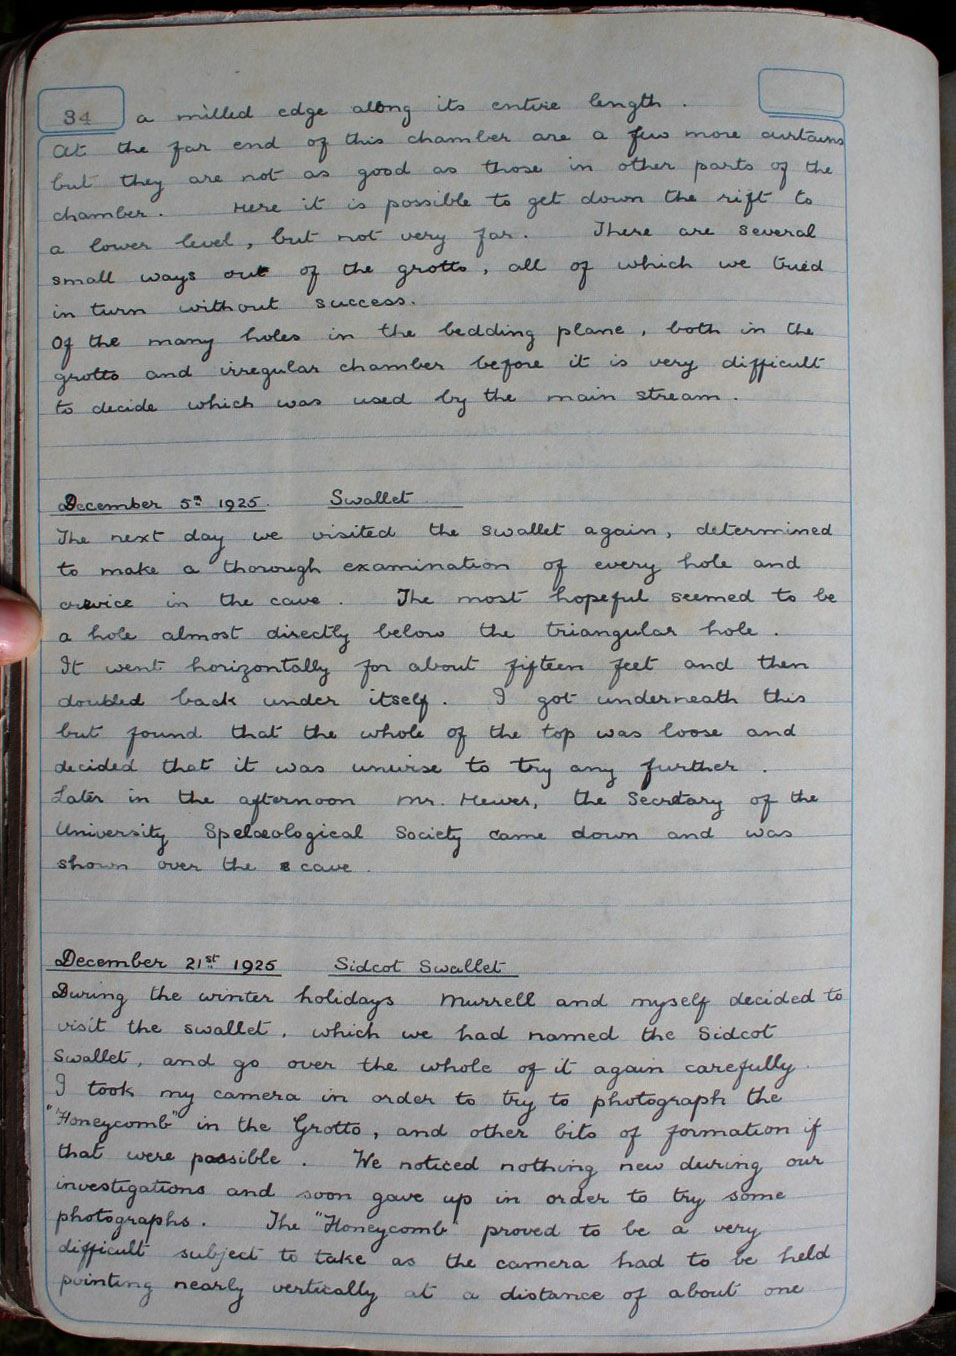 34 a milled edge along its entire length .
At the far end of this chamber are a few more curtains
but they are not as good as those in other parts of the
chamber. Here it is possible to get down the rift to
a lower level, but not very far. There are several
small ways out of the grotto, all of which we tried
in turn without success.
Of the many holes in the bedding plane, both in the
grotto and irregular chamber before it is very difficult
to decide which was used by the main stream.
December 5th 1925. Swallet
The next day we visited the swallet again, determined
to make a thorough examination of every hole and
crevice in the cave. The most hopeful seemed to be
a hole almost directly below the triangular hole.
It went horizontally for about fifteen feet and then
doubled back under itself. I got underneath this
but found that the whole of the top was loose and
decided that it was unwise to try any further.
Later in the afternoon Mr. Hewer, the Secretary of the
University Spelæological Society came down and was
shown over the cave.
December 21st 1925 Sidcot Swallet
During the winter holidays Murrell and myself decided to
visit the swallet, which we had named the Sidcot
Swallet, and go over the whole of it again carefully.
I took my camera in order to try to photograph the
"Honeycomb" in the Grotto, and other bits of formation if
that were possible. We noticed nothing new during our
investigations and soon gave up in order to try some
photographs. The "Honeycomb" proved to be a very
difficult subject to take as the camera had to be held
pointing nearly vertically at a distance of about one